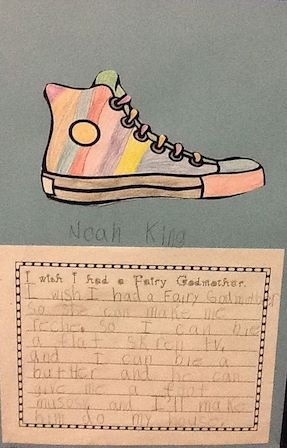 Noah King
I wish I had a Fairy Godmother.
I wish I had a Fairy Godmother
so she can make me
reche. so I can bie
a flat skren tv.
and I can bie a
butter and he can
give me a foot
musosg and I'll make
him do my house.